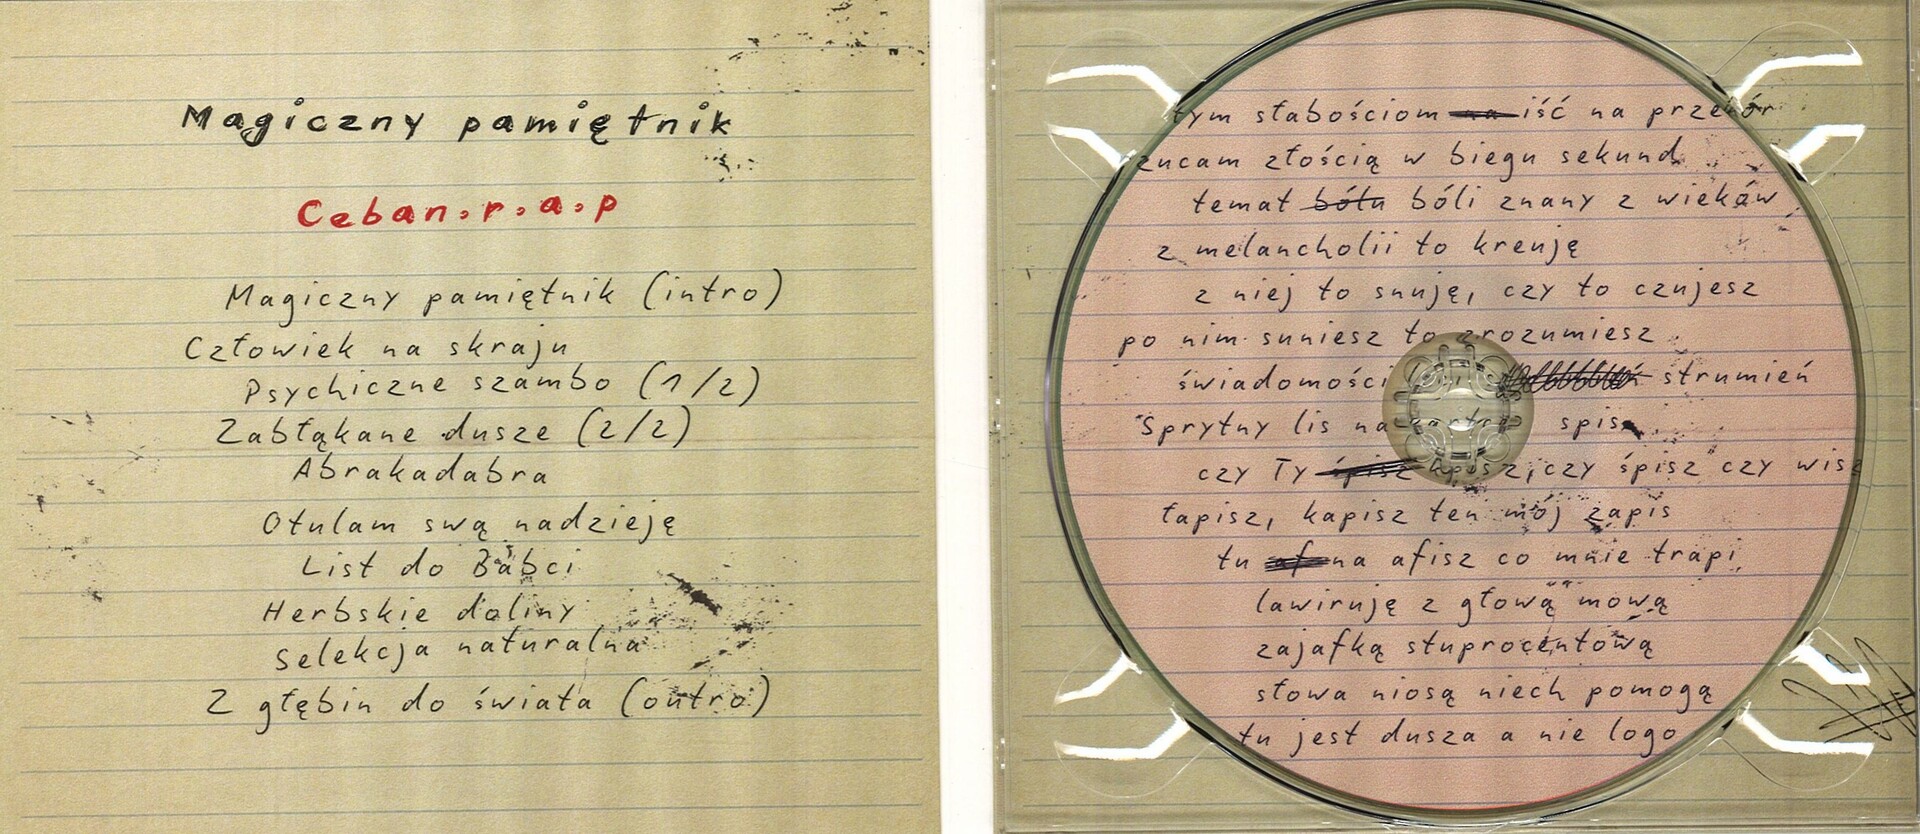 Magiczny pamiętnik
Ceban.r.a.p
Magiczny pamiętnik (intro)
Człowiek na skraju
Psychiczne szambo (1/2)
Zabłąkane dusze (2/2)
Abrakadabra
Otulam swą nadzieję
List do Babci
Herbskie doliny
Selekcja naturalna
Z głębin do świata (outro)
tym słabościom na iść na przekór
zucam złością w biegu sekund
temat bólu bóli znany z wieków
z melancholii to kreuję
z niej to snuję, czy to czujesz
po nim suniesz to zrozumiesz
świadomości strumień
Sprytny lis na spis
czy Ty śpisz czy śpisz czy wisz
łapisz, kapisz ten mój zapis
tu af na afisz co mnie trapi
lawiruję z głową mową
zajafką stuprocentową
słowa niosą niech pomogą
tu jest dusza a nie logo